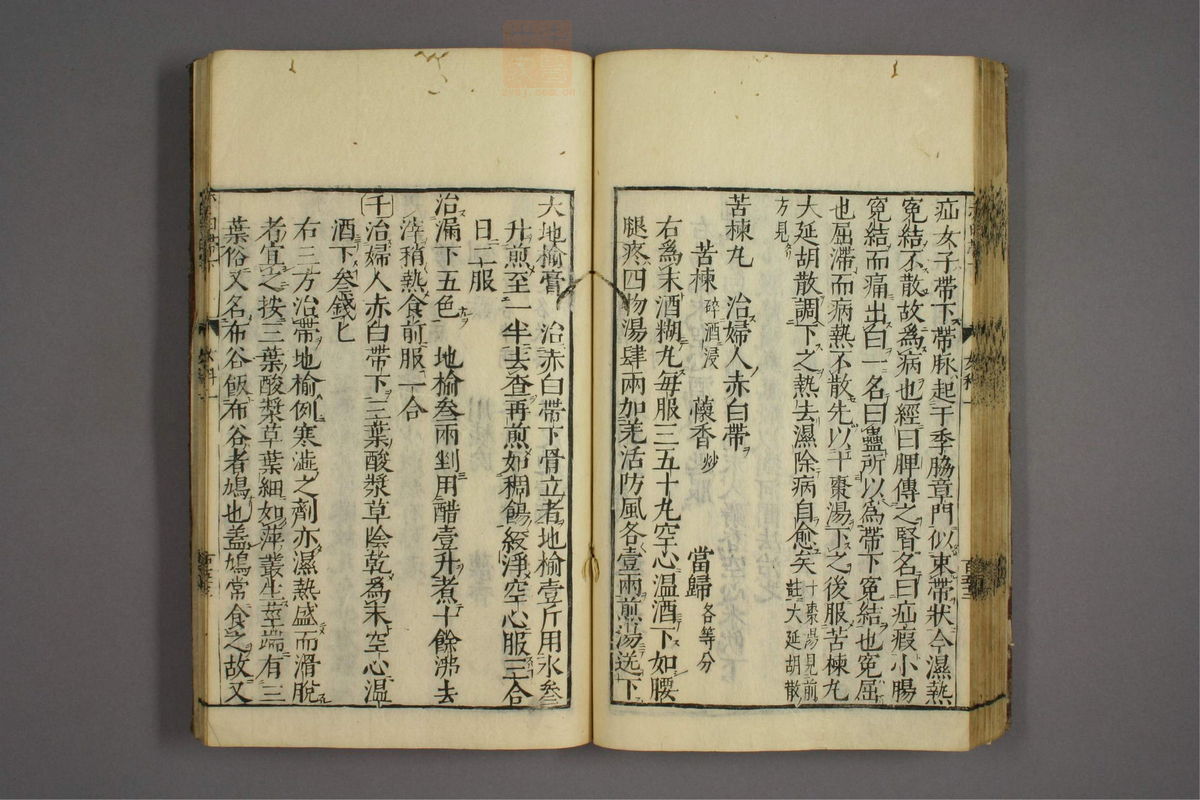 疝女子帶下帶脉起于季脇章門似束帶狀今濕熱
寃結不散故爲病也經曰脾傳之腎名曰疝瘕小腸
寃結而痛出白一名曰蠱所以爲帶下寃結也寃屈
也屈滯而病熱不散先以十棗湯下之後服苦楝丸
大延胡散調下之熱去濕除病自愈矣 十棗湯見前註大延胡散
方見
苦楝丸 治婦人赤白帶
苦楝 碎酒浸 蘹香 炒 當歸 各等分
右爲末酒糊丸每服三五十丸空心温酒下如腰
腿疼四物湯肆兩加羌活防風各壹兩煎湯送下
大地榆膏 治赤白帶下骨立者地榆壹斤用水叁
升煎至一半去査再煎如稠餳絞淨空心服三合
日二服
治漏下五色 地榆叁兩剉用醋壹升煮十餘沸去
滓稍熱食前服一合
千治婦人赤白帶下三葉酸漿草陰乾爲末空心温
酒下叁錢匕
右三方治帶地榆例寒澁之劑亦濕熱盛而滑脫
者宜之按三葉酸漿草葉細如萍叢生莖端有三
葉俗又名布谷飯布谷者鳩也蓋鳩常食之故又